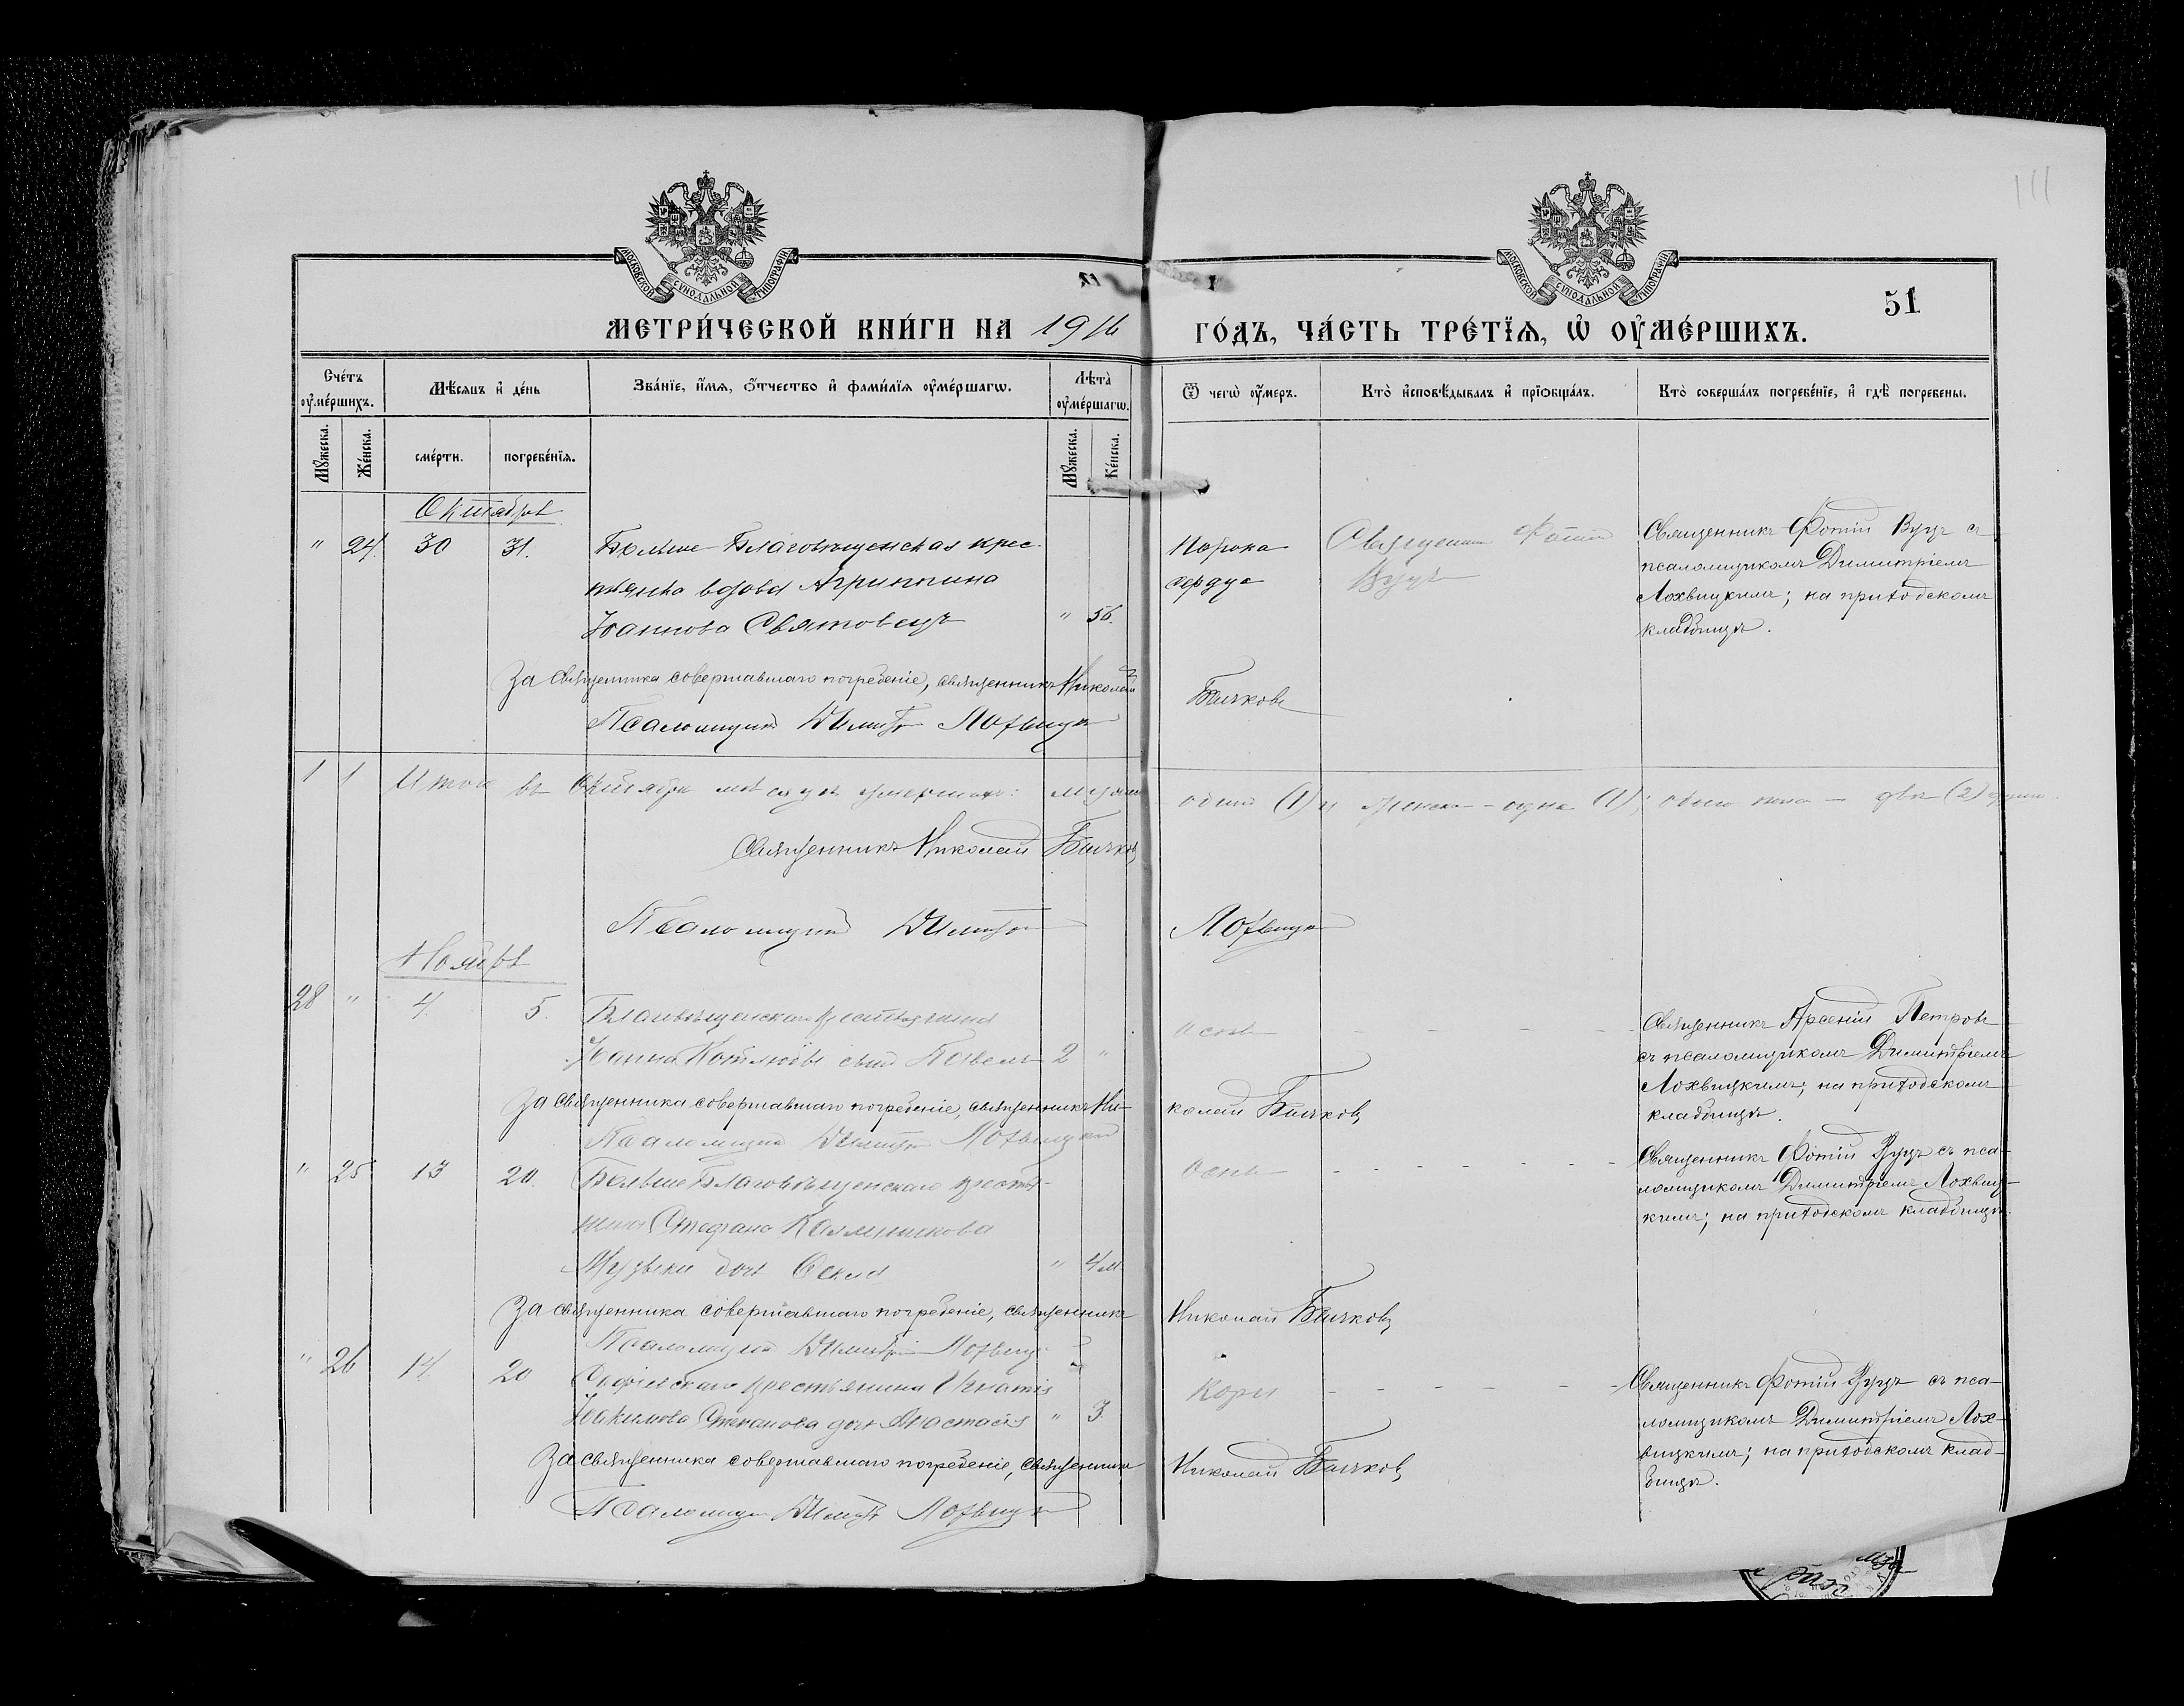 111
МОСКОВСКОЙ СѴНОДАЛЬНОЙ ТИПОГРАФІИ
МОСКОВСКОЙ СѴНОДАЛЬНОЙ ТИПОГРАФІИ
51
МЕТРИ́ЧЕСКОЙ КНИ́ГИ НА 1916 ГО́ДЪ, ЧА́СТЬ ТРЕ́ТЇѦ, Ѡ҆ ОУ҆МЕ́РШИХЪ.
Сче́тъ оу҆ме́ршихъ.
Мѣ́сѧцъ и҆ де́нь
Зва́нїе, и҆́мѧ, ѻ҆́тчество и҆ фами́лїѧ оу҆ме́ршагѡ.
Лѣ́та оу҆ме́ршагѡ.
Ѿ чегѡ̀ оу҆́меръ.
Кто̀ и҆сповѣ́дывалъ и҆ прїѻбща́лъ.
Кто̀ соверша́лъ погребе́нїе, и҆ гдѣ̀ погребены.
Мꙋ́жеска.
Же́нска.
сме́рти.
погребе́нїѧ.
Мꙋ́жеска.
Же́нска.
Октябрь
" 24. 30 31. Больше-Благовѣщенская крес-
тьянка вдова Агриппина
Іоаннова Святовецъ " 56.
Порока
сердца
Священник Фотій
Вуцъ
Священникъ Фотій Вуцъ съ
псаломщикомъ Димитріемъ
Лохвицкимъ; на приходскомъ
кладбищѣ.
За священника совершавшаго погребеніе, священникъ Николай Бычковъ
Псаломщикъ Димитр Лохвицкій
1 1 Итого въ Октябрѣ мѣсяцѣ умершихъ: мужеска одинъ (1) и женска - одна (1); обоего пола - два (2)
Священникъ Николай Бычковъ
Псаломщикъ Димитр Лохвицкій
Ноябрь
28 " 4. 5. Благовѣщенскаго крестьянина
Іоанна сынъ Павелъ 2 "
Оспы
Священникъ Арсеній Петровъ
съ псаломщикомъ Димитріемъ
Лохвицкимъ; на приходскомъ
кладбищѣ.
За священника совершавшаго погребеніе, священникъ Николай Бычковъ
Псаломщикъ Димитр Лохвицкій
" 25 13 20. Больше Благовѣщенскаго крестья-
нина Стефана
дочь " 4 м.
Оспы
Священникъ Фотій Вуцъ съ пса-
ломщикомъ Димитріемъ Лохвиц-
кимъ; на приходскомъ кладбищѣ.
За священника совершавшаго погребеніе, священникъ Николай Бычковъ
Псаломщикъ Димитрій Лохвиц
" 26 14. 20 крестьянина Игнатія
Іакимова Степанова дочь Анастасія " 3
Кори
Священникъ Фотій Вуцъ съ пса-
ломщикомъ Димитріемъ Лох-
вицкимъ; на приходскомъ клад-
бищѣ.
За священника совершавшаго погребеніе, священникъ Николай Бычковъ
Псаломщикъ Димитр Лохвицкій